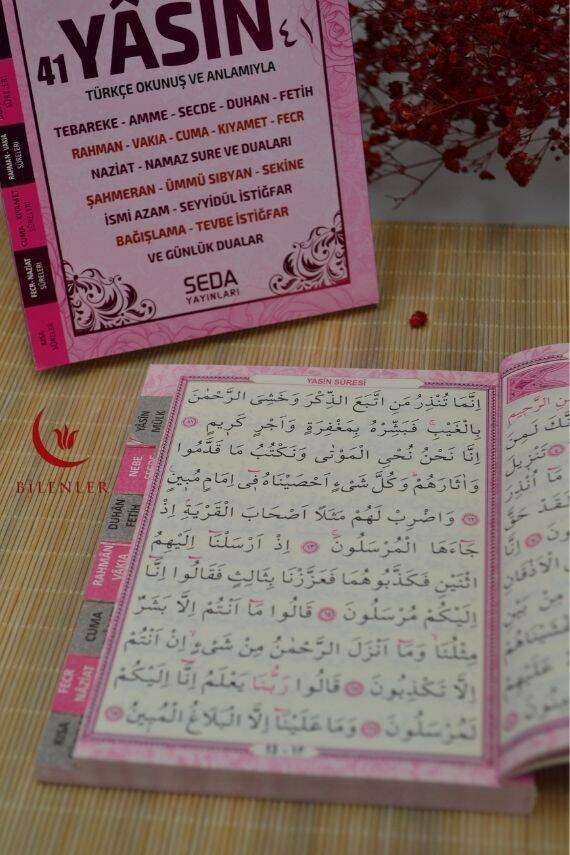 41 YÂSİN ٤١
TÜRKÇE OKUNUŞ VE ANLAMIYLA
TEBAREKE - AMME - SECDE - DUHAN - FETİH
RAHMAN - VAKIA - CUMA - KIYAMET - FECR
NAZİAT - NAMAZ SURE VE DUALARI
ŞAHMERAN - ÜMMÜ SIBYAN - SEKİNE
İSMİ AZAM - SEYYİDÜL İSTİĞFAR
BAĞIŞLAMA - TEVBE İSTİĞFAR
VE GÜNLÜK DUALAR
SEDA
YAYINLARI
SÛRELERİ
RAHMAN - VAKIA
SÛRELERİ
CUMA - KIYAMET
SÛRELERİ
FECR - NAZİAT
SÛRELERİ
KISA
SÛRELER
BİLENLER
YASİN SÛRESİ
اِنَّمَا تُنْذِرُ مَنِ اتَّبَعَ الذِّكْرَ وَخَشِىَ الرَّحْمٰنَ
بِالْغَيْبِۚ فَبَشِّرْهُ بِمَغْفِرَةٍ وَاَجْرٍ كَرِيمٍ ﴿١١﴾
اِنَّا نَحْنُ نُحْيِ الْمَوْتٰى وَنَكْتُبُ مَا قَدَّمُوا
وَاٰثَارَهُمْۜ وَكُلَّ شَىْءٍ اَحْصَيْنَاهُ فٖٓى اِمَامٍ مُبٖينٍ
﴿١٢﴾ وَاضْرِبْ لَهُمْ مَثَلًا اَصْحَابَ الْقَرْيَةِۢ اِذْ
جَٓاءَهَا الْمُرْسَلُونَۚ ﴿١٣﴾ اِذْ اَرْسَلْنَٓا اِلَيْهِمُ
اثْنَيْنِ فَكَذَّبُوهُمَا فَعَزَّزْنَا بِثَالِثٍ فَقَالُٓوا اِنَّٓا
اِلَيْكُمْ مُرْسَلُونَ ﴿١٤﴾ قَالُوا مَٓا اَنْتُمْ اِلَّا بَشَرٌ
مِثْلُنَاۙ وَمَٓا اَنْزَلَ الرَّحْمٰنُ مِنْ شَىْءٍۙ اِنْ اَنْتُمْ
اِلَّا تَكْذِبُونَ ﴿١٥﴾ قَالُوا رَبُّنَا يَعْلَمُ اِنَّٓا اِلَيْكُمْ
لَمُرْسَلُونَ ﴿١٦﴾ وَمَا عَلَيْنَٓا اِلَّا الْبَلَاغُ الْمُبٖينُ ﴿١٧﴾
YÂSİN
MÜLK
NEBE
SECDE
DUHÂN
FETİH
RAHMÂN
VÂKIA
CUMA
FECR
NÂZİAT
KISA